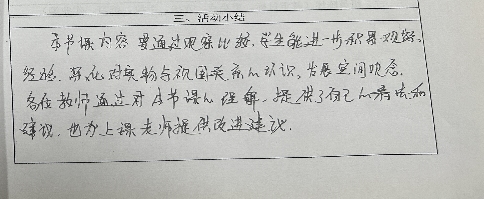 三、活动小结
本节课内容要通过观察比较,学生能进一步积累观察
经验,强化对实物与视图关系的认识,发展空间观念.
各位教师通过对本节课的理解,提供了自己的看法和
建议,也为上课老师提供改进建议.